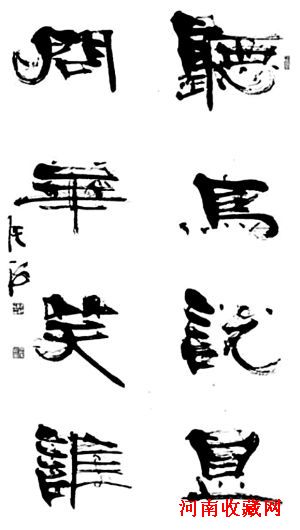 聽鳥説甚
問華笑誰
张海
河南收藏网